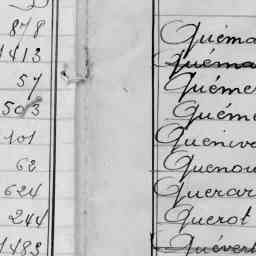 878
1413
57
503
101
62
624
244
1483
Quéma
Quéma
Quéme
Quéme
Queniv
Quenou
Querar
Querot
Quéver